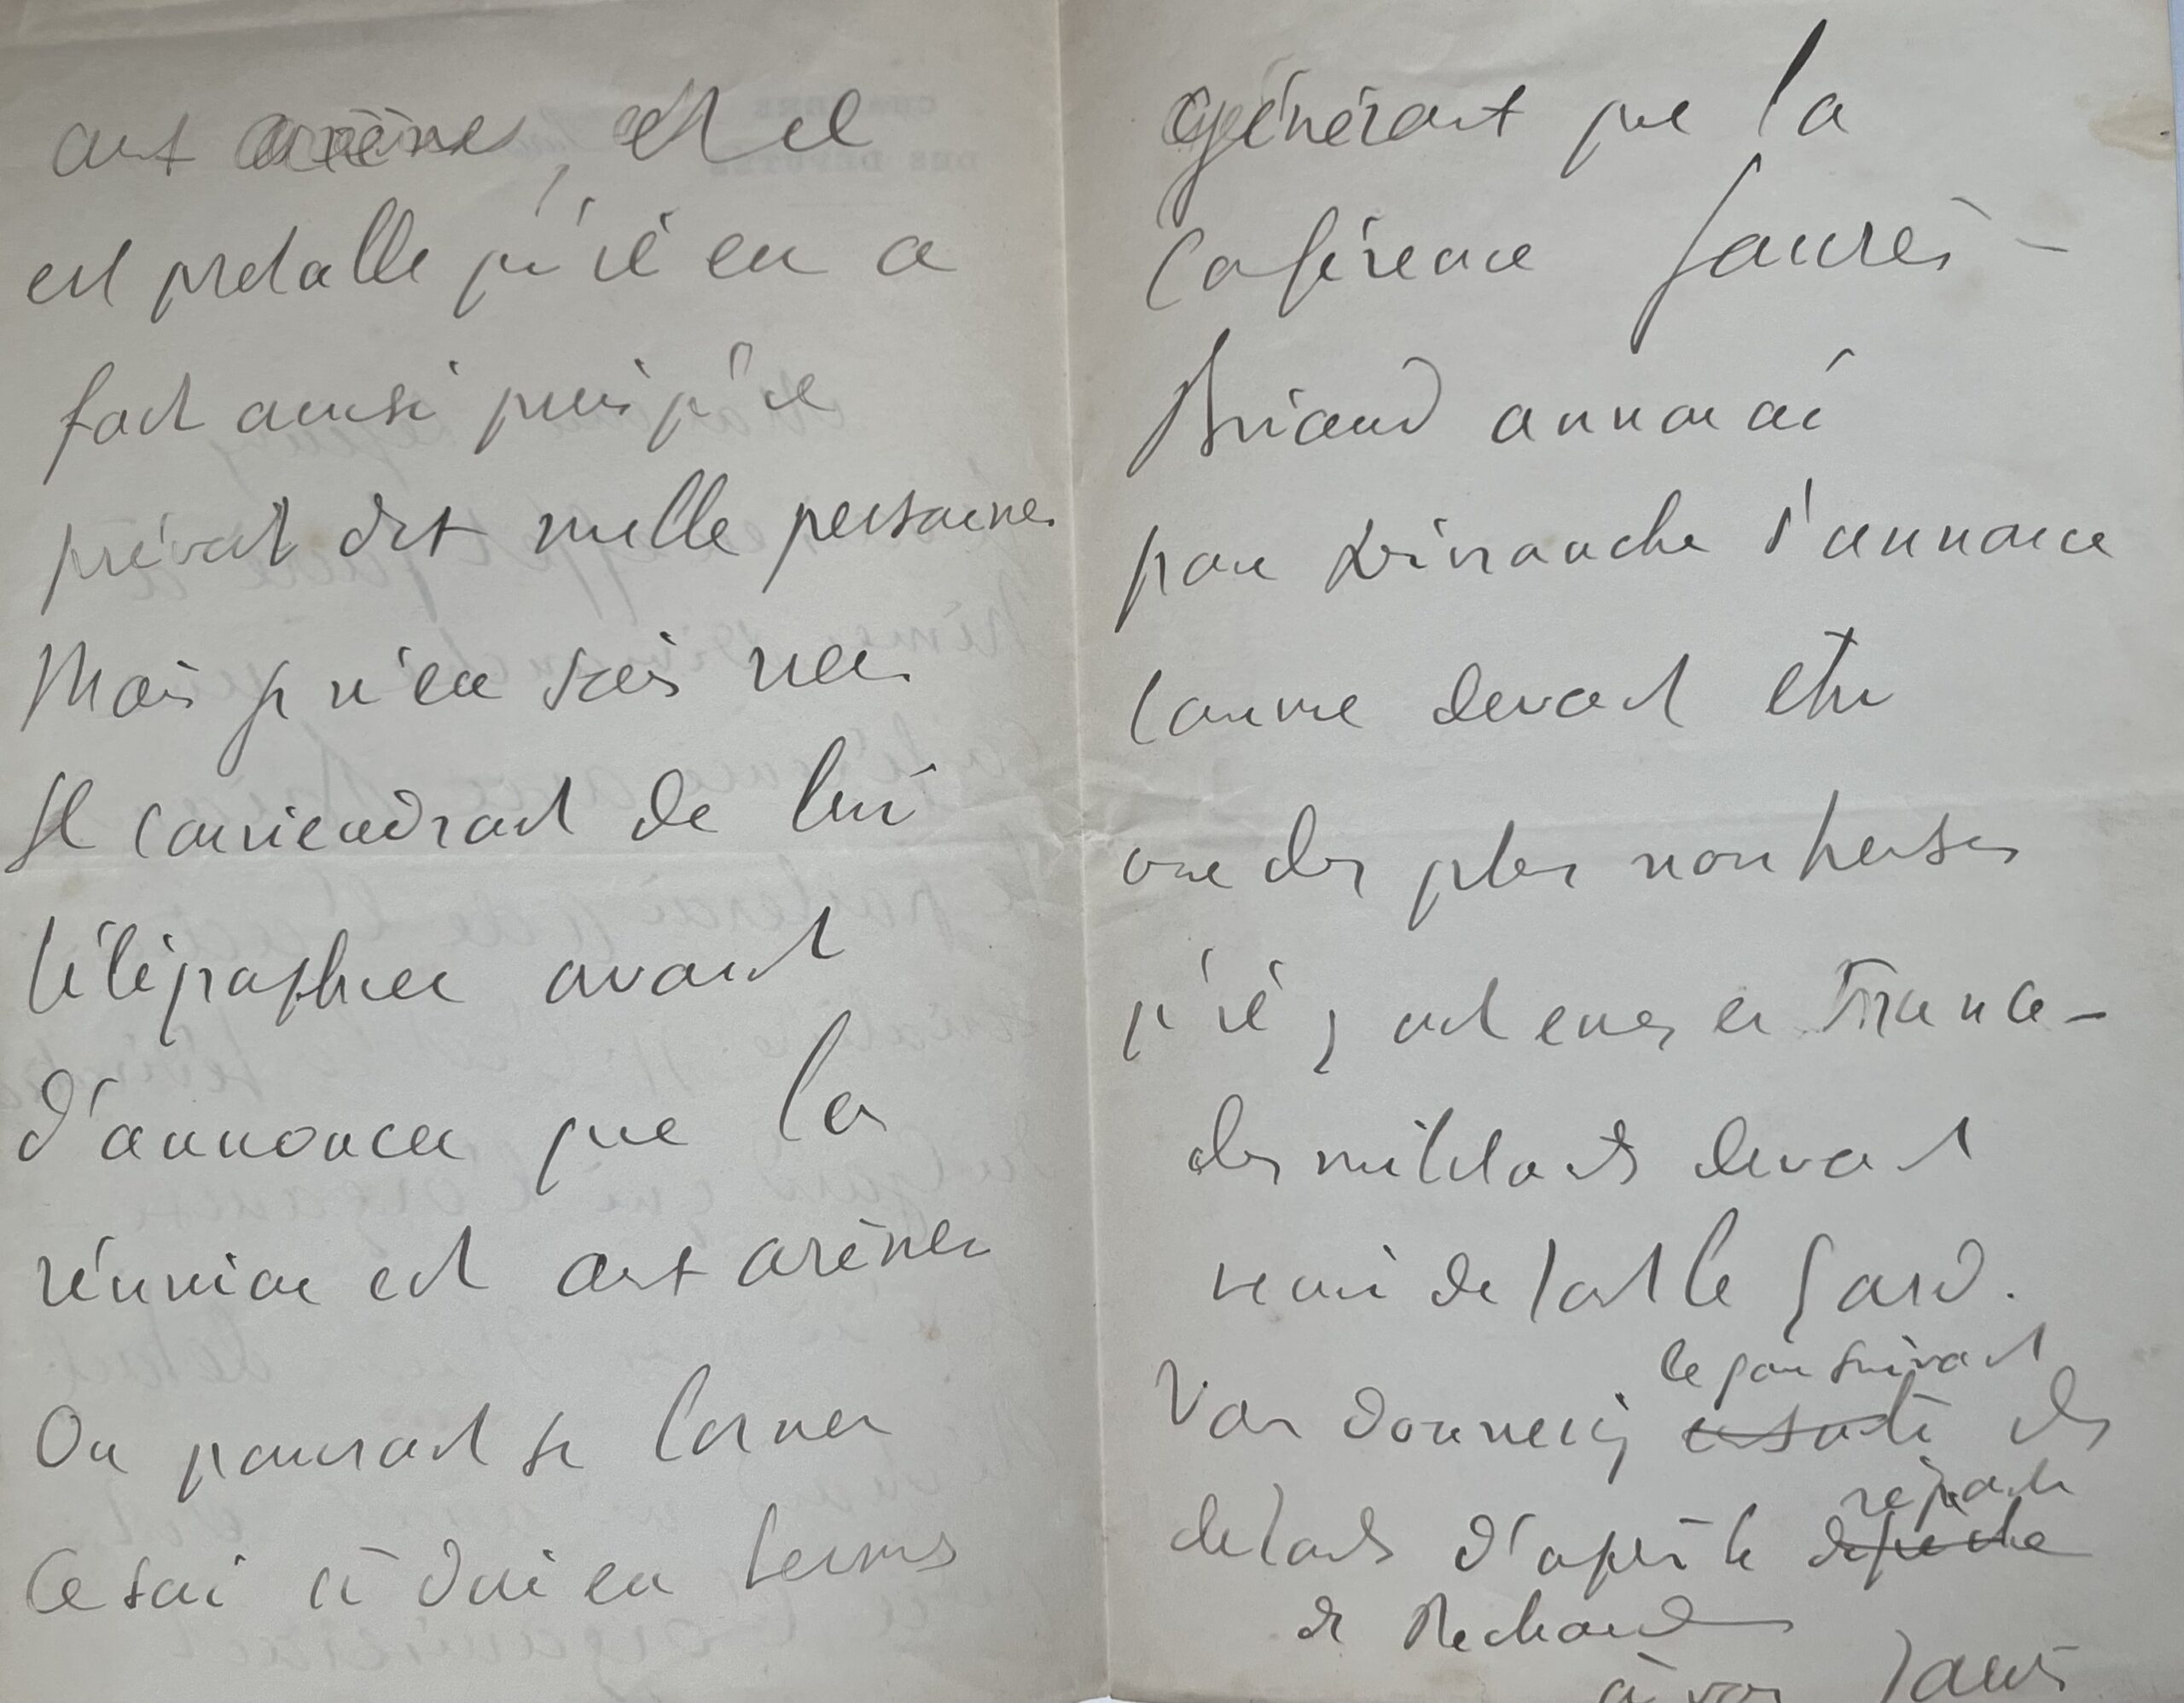 aux arènes, et il
est probable qu'il en a
fait ainsi puisqu'il
prévoit dix mille personnes
Mais je n'en sais rien.
Il conviendrait de lui
télégraphier avant
d'annoncer que la
réunion est aux arènes
On pourrait se borner
ce soir à dire en termes
généraux que la
Conférence Jaurès -
Briand annoncée
pour Dimanche s'annonce
comme devant être
une des plus nombreuses
qu'il y ait eues en France -
des militants devant
venir de tout le Gard.
le jour suivant
Vous donneriez des
réponse
détails d'après la dépêche
de Rechaud
à vous Jaurès